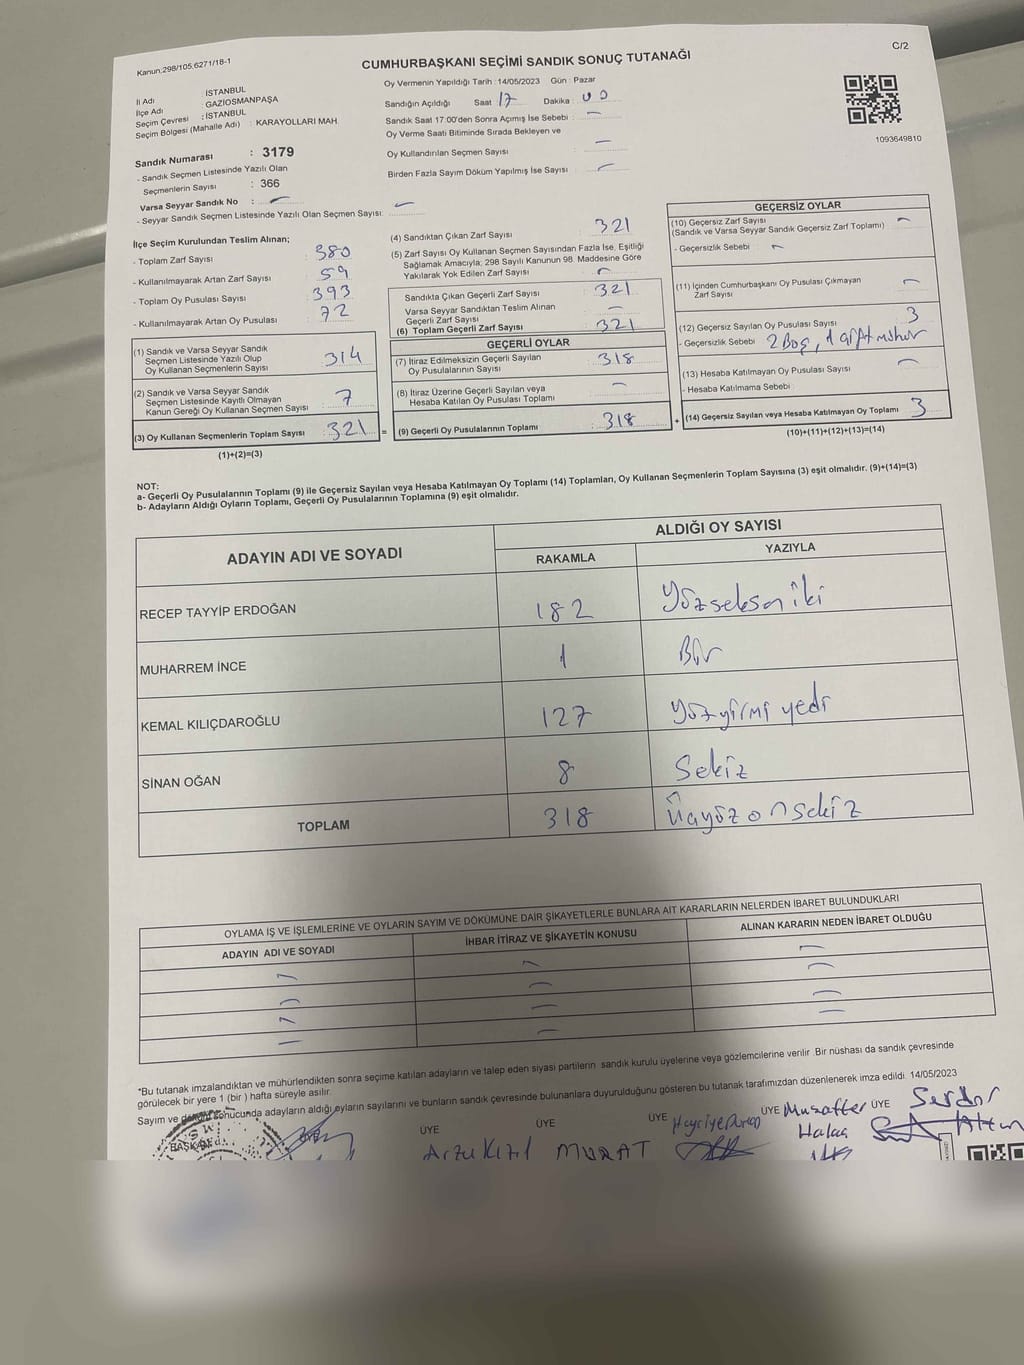 Kanun:298/105.6271/18-1
C/2
CUMHURBAŞKANI SEÇİMİ SANDIK SONUÇ TUTANAĞI
İl Adı : İSTANBUL
İlçe Adı : GAZİOSMANPAŞA
Seçim Çevresi : İSTANBUL
Seçim Bölgesi (Mahalle Adı) : KARAYOLLARI MAH.
Sandık Numarası : 3179
- Sandık Seçmen Listesinde Yazılı Olan
Seçmenlerin Sayısı : 366
Varsa Seyyar Sandık No : -
- Seyyar Sandık Seçmen Listesinde Yazılı Olan Seçmen Sayısı: -
Oy Vermenin Yapıldığı Tarih : 14/05/2023 Gün : Pazar
Sandığın Açıldığı Saat 17 Dakika : 00
Sandık Saat 17:00'den Sonra Açımış İse Sebebi : -
Oy Verme Saati Bitiminde Sırada Bekleyen ve
Oy Kullandırılan Seçmen Sayısı -
Birden Fazla Sayım Döküm Yapılmış İse Sayısı : -
1093649810
İlçe Seçim Kurulundan Teslim Alınan;
- Toplam Zarf Sayısı : 380
- Kullanılmayarak Artan Zarf Sayısı : 59
- Toplam Oy Pusulası Sayısı : 393
- Kullanılmayarak Artan Oy Pusulası : 72
(1) Sandık ve Varsa Seyyar Sandık
Seçmen Listesinde Yazılı Olup
Oy Kullanan Seçmenlerin Sayısı : 314
(2) Sandık ve Varsa Seyyar Sandık
Seçmen Listesinde Kayıtlı Olmayan
Kanun Gereği Oy Kullanan Seçmen Sayısı : 7
(3) Oy Kullanan Seçmenlerin Toplam Sayısı : 321 =
(1)+(2)=(3)
(4) Sandıktan Çıkan Zarf Sayısı : 321
(5) Zarf Sayısı Oy Kullanan Seçmen Sayısından Fazla İse, Eşitliği
Sağlamak Amacıyla; 298 Sayılı Kanunun 98. Maddesine Göre
Yakılarak Yok Edilen Zarf Sayısı : -
Sandıkta Çıkan Geçerli Zarf Sayısı : 321
Varsa Seyyar Sandıktan Teslim Alınan
Geçerli Zarf Sayısı :
(6) Toplam Geçerli Zarf Sayısı : 321
GEÇERLİ OYLAR
(7) İtiraz Edilmeksizin Geçerli Sayılan
Oy Pusulalarının Sayısı : 318
(8) İtiraz Üzerine Geçerli Sayılan veya
Hesaba Katılan Oy Pusulası Toplamı : -
(9) Geçerli Oy Pusulalarının Toplamı : 318 +
GEÇERSİZ OYLAR
(10) Geçersiz Zarf Sayısı : -
(Sandık ve Varsa Seyyar Sandık Geçersiz Zarf Toplamı)
- Geçersizlik Sebebi : -
(11) İçinden Cumhurbaşkanı Oy Pusulası Çıkmayan
Zarf Sayısı : -
(12) Geçersiz Sayılan Oy Pusulası Sayısı : 3
- Geçersizlik Sebebi 2 Boş, 1 çift mühür
(13) Hesaba Katılmayan Oy Pusulası Sayısı : -
- Hesaba Katılmama Sebebi :
(14) Geçersiz Sayılan veya Hesaba Katılmayan Oy Toplamı 3
(10)+(11)+(12)+(13)=(14)
NOT:
a- Geçerli Oy Pusulalarının Toplamı (9) ile Geçersiz Sayılan veya Hesaba Katılmayan Oy Toplamı (14) Toplamları, Oy Kullanan Seçmenlerin Toplam Sayısına (3) eşit olmalıdır. (9)+(14)=(3)
b- Adayların Aldığı Oyların Toplamı, Geçerli Oy Pusulalarının Toplamına (9) eşit olmalıdır.
ADAYIN ADI VE SOYADI
ALDIĞI OY SAYISI
RAKAMLA YAZIYLA
RECEP TAYYİP ERDOĞAN 182 Yüzseksen iki
MUHARREM İNCE 1 Bir
KEMAL KILIÇDAROĞLU 127 yüzyirmi yedi
SİNAN OĞAN 8 Sekiz
TOPLAM 318 Üçyüz onsekiz
OYLAMA İŞ VE İŞLEMLERİNE VE OYLARIN SAYIM VE DÖKÜMÜNE DAİR ŞİKAYETLERLE BUNLARA AİT KARARLARIN NELERDEN İBARET BULUNDUKLARI
ADAYIN ADI VE SOYADI İHBAR İTİRAZ VE ŞİKAYETİN KONUSU ALINAN KARARIN NEDEN İBARET OLDUĞU
- - -
- - -
- - -
- - -
*Bu tutanak imzalandıktan ve mühürlendikten sonra seçime katılan adayların ve talep eden siyasi partilerin sandık kurulu üyelerine veya gözlemcilerine verilir .Bir nüshası da sandık çevresinde
görülecek bir yere 1 (bir ) hafta süreyle asılır.
Sayım ve döküm sonucunda adayların aldığı oyların sayılarını ve bunların sandık çevresinde bulunanlara duyurulduğunu gösteren bu tutanak tarafımızdan düzenlenerek imza edildi. 14/05/2023
BAŞKAN ÜYE ÜYE ÜYE ÜYE ÜYE
Arzu Kızıl MURAT Hayriye Muzaffer Serdar